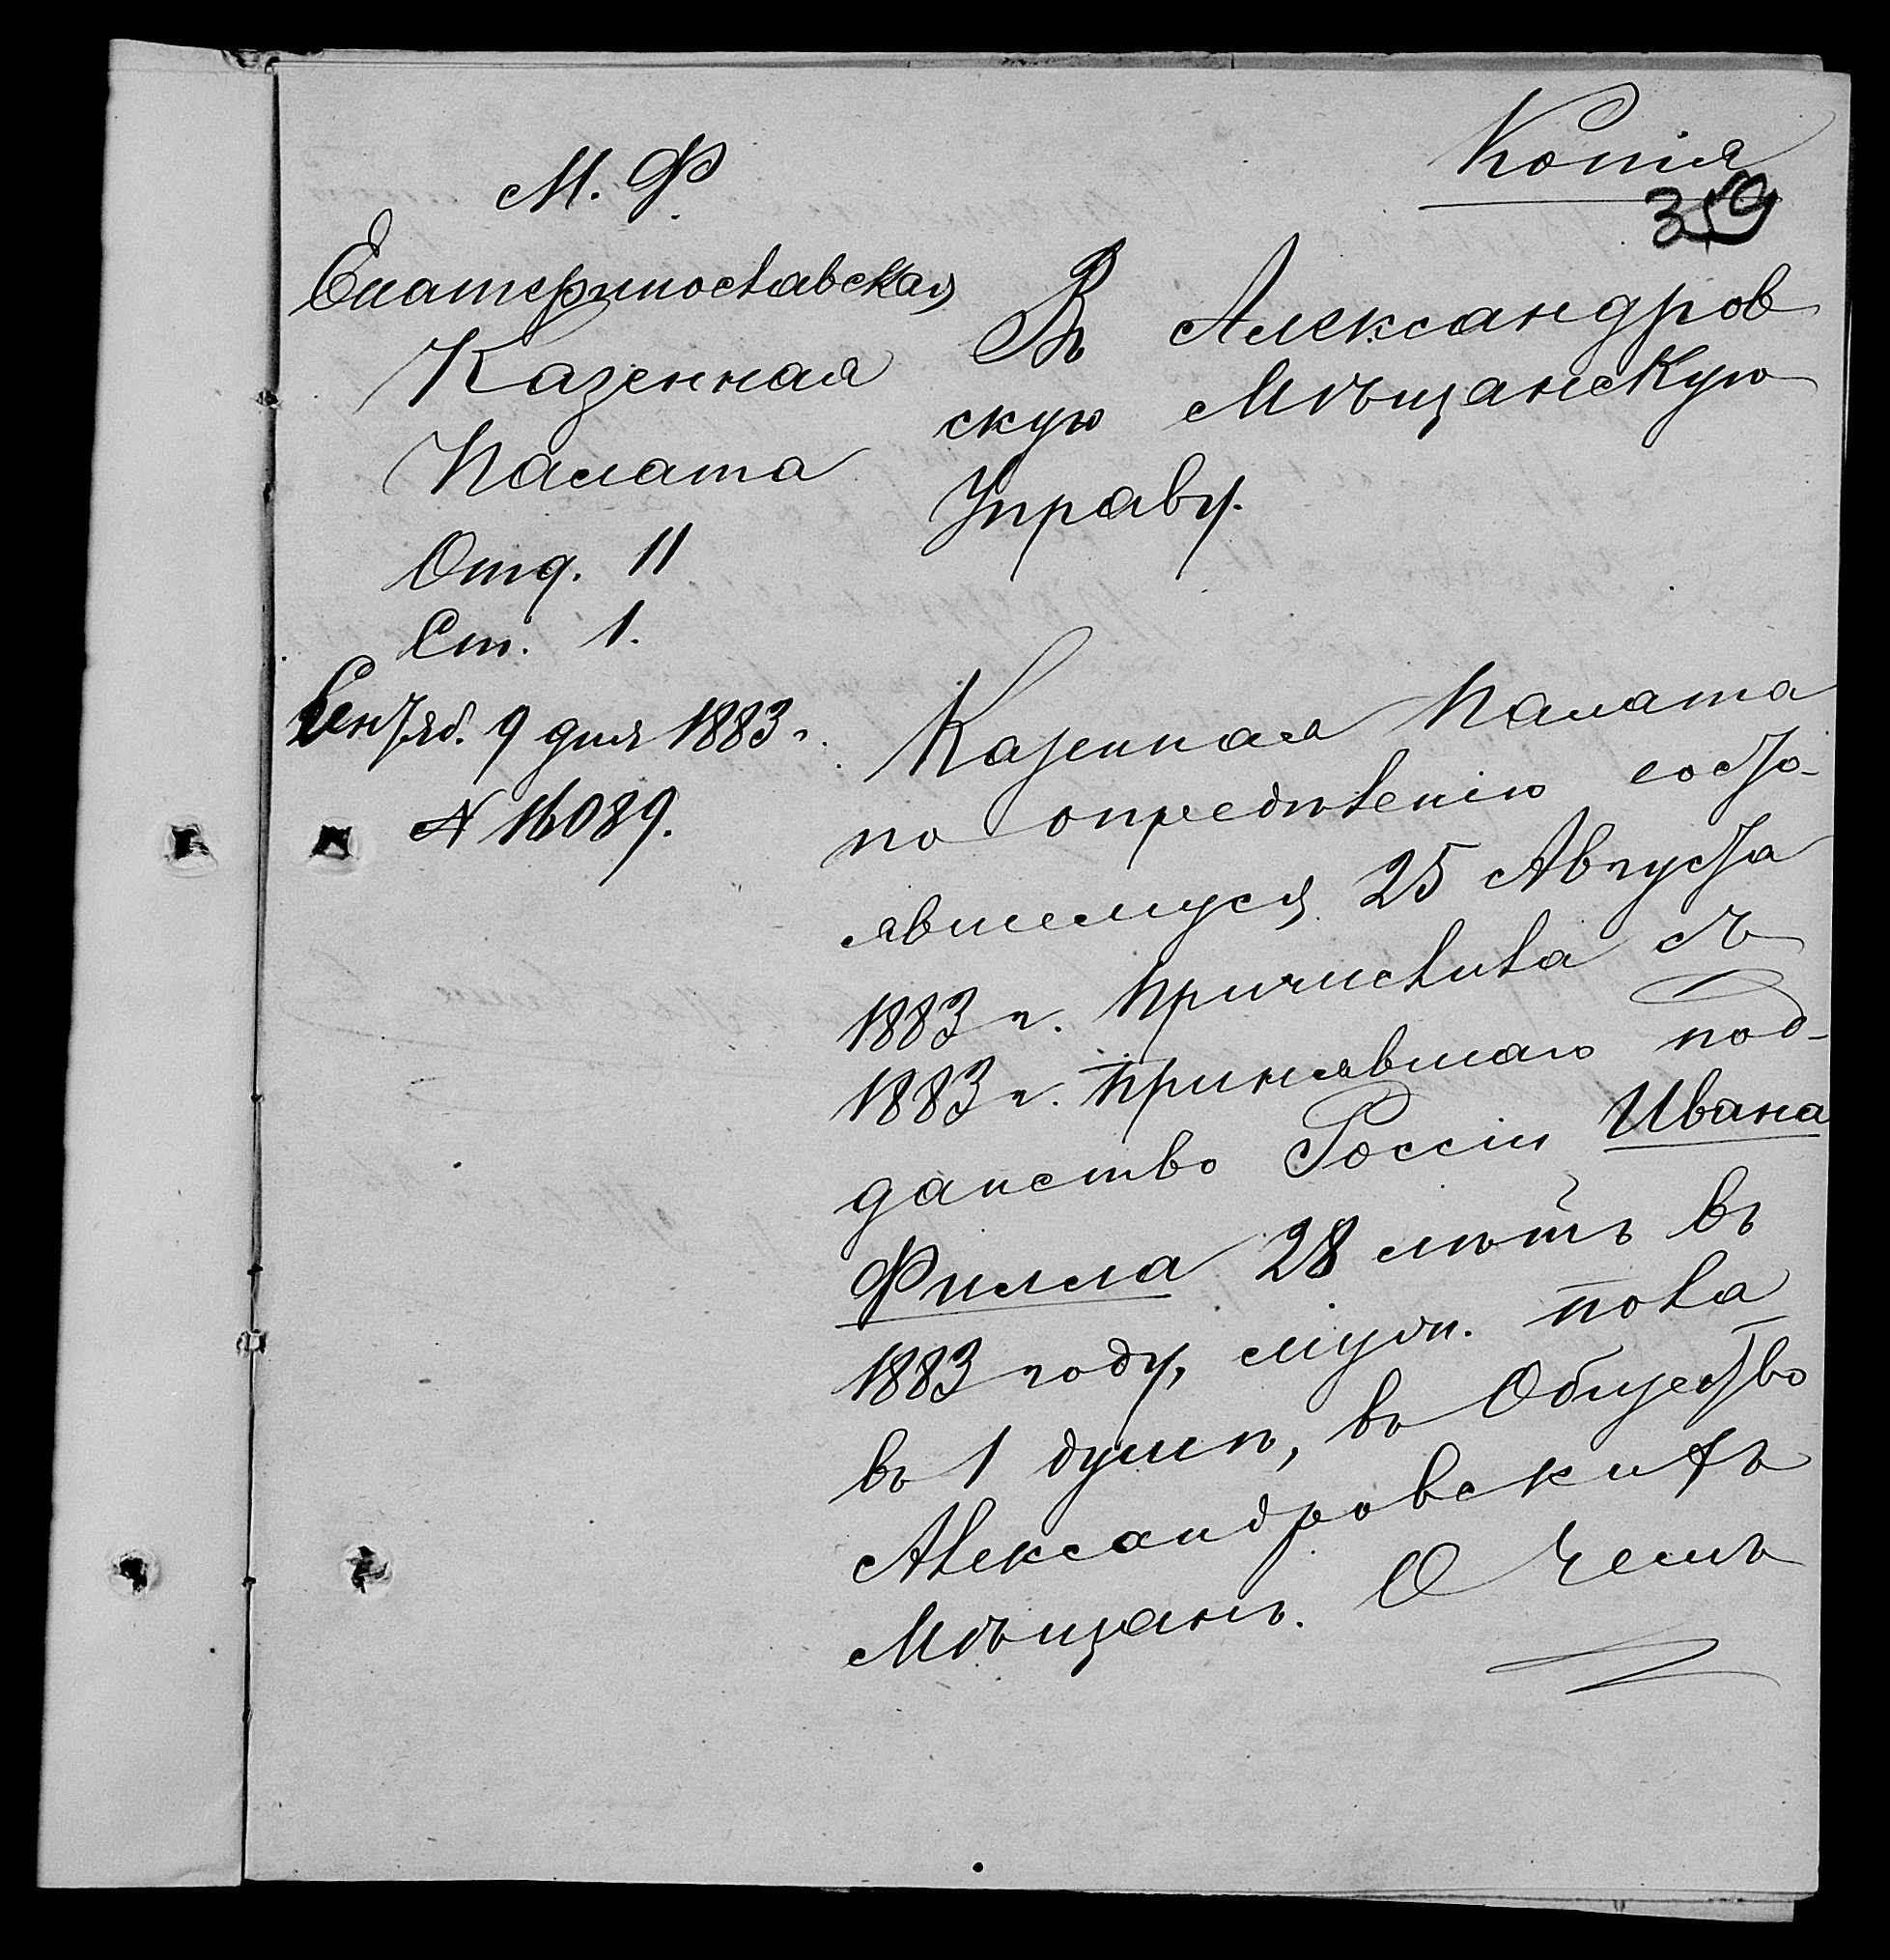 Копія
359
М. Ф.
Екатеринославская
Казенная
Палата
Отд. II
Ст. 1.
Сентяб. 9 дня 1883 г.
№ 16089.
Въ Александров
скую Мѣщанскую
Управу.
Казенная Палата
по опредѣленію состо-
явшемуся 25 Августа
1883 г. причислила съ
1883 г. принявшаго под-
данство Россіи Ивана
Филла 28 лѣтъ въ
1883 году, муж. пола
въ 1 душѣ, въ Общество
Александровскихъ
Мѣщанъ. О чемъ